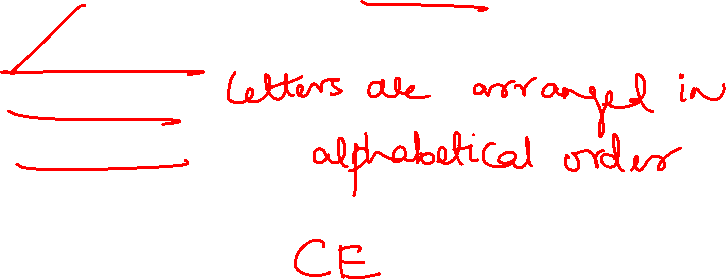 letters are arranged in
alphabetical order
CE